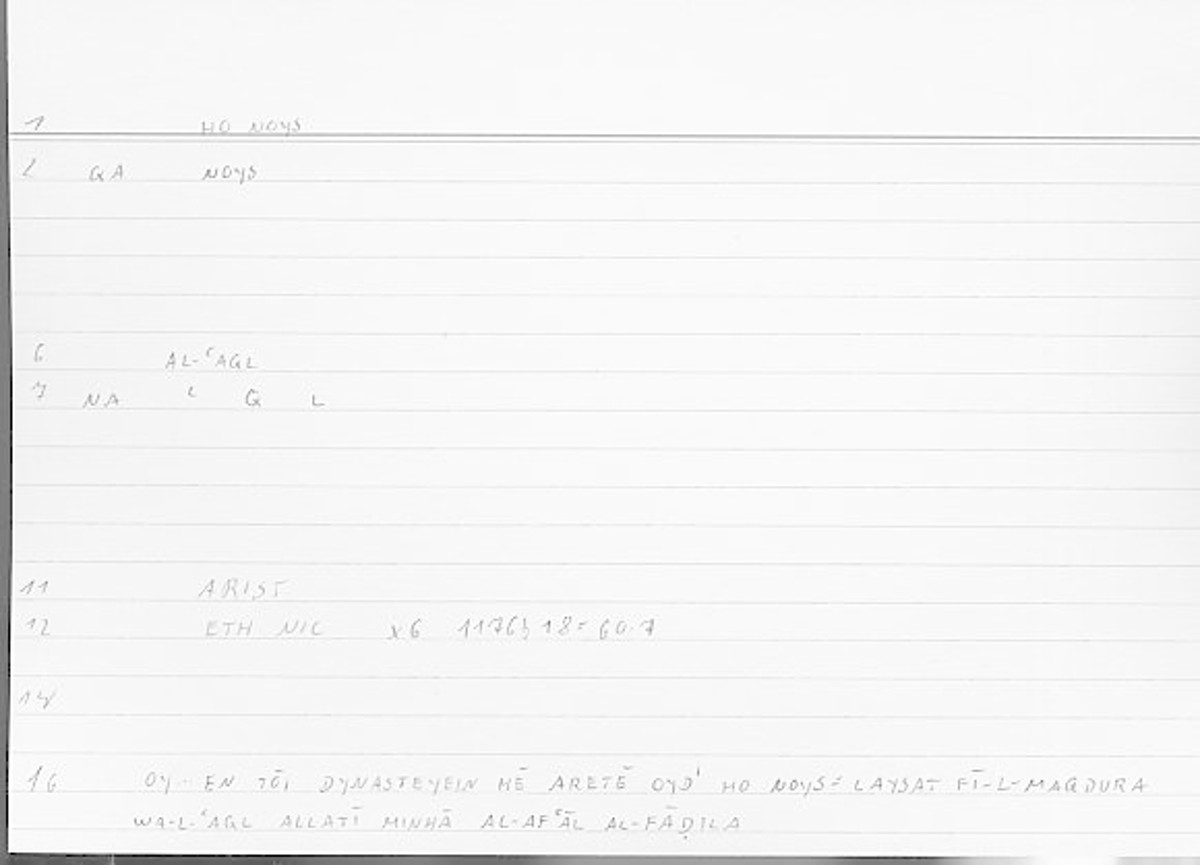 1 HO NOYS
2 QA NOYS
6 AL-ʿAQL
7 NA ʿ Q L
11 ARIST
12 ETH NIC x6 1176b18= 60.7
14
16 OY·· EN TŌI DYNASTEYEIN HĒ ARETĒ OYD' HO NOYS= LAYSAT FĪ-L-MAQDURA
WA-L-ʿAQL ALLATĪ MINHĀ AL-AFʿĀL AL-FĀḌILA